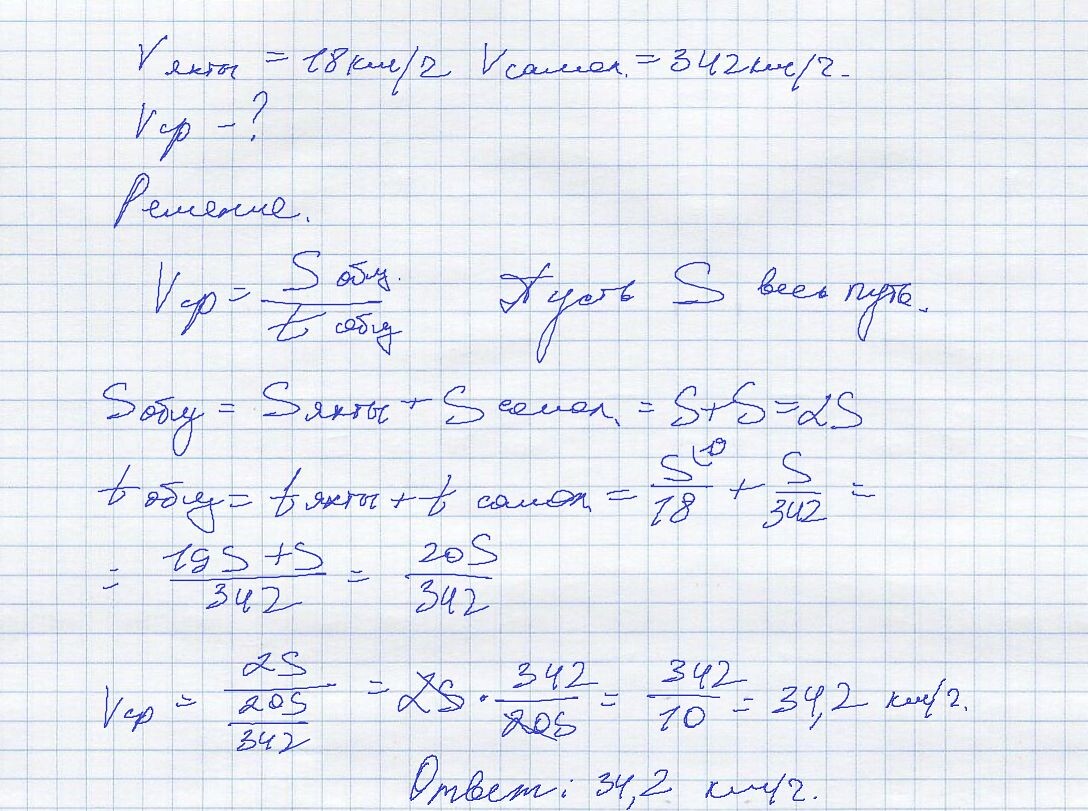 V яхты = 18 км/ч Vсамол. = 342 км/ч.
Vср - ?
Решение.
Vср = S общ. / t общ Пусть S весь путь.
Sобщ = Sяхты + S самол. = S+S = 2S
t общ = t яхты + t самол = S⁽¹⁹/18 + S/342 =
= 19S + S/342 = 20S/342
Vср = 2S/(20S/342) = 2S · 342/20S = 342/10 = 34,2 км/ч.
Ответ: 34,2 км/ч.